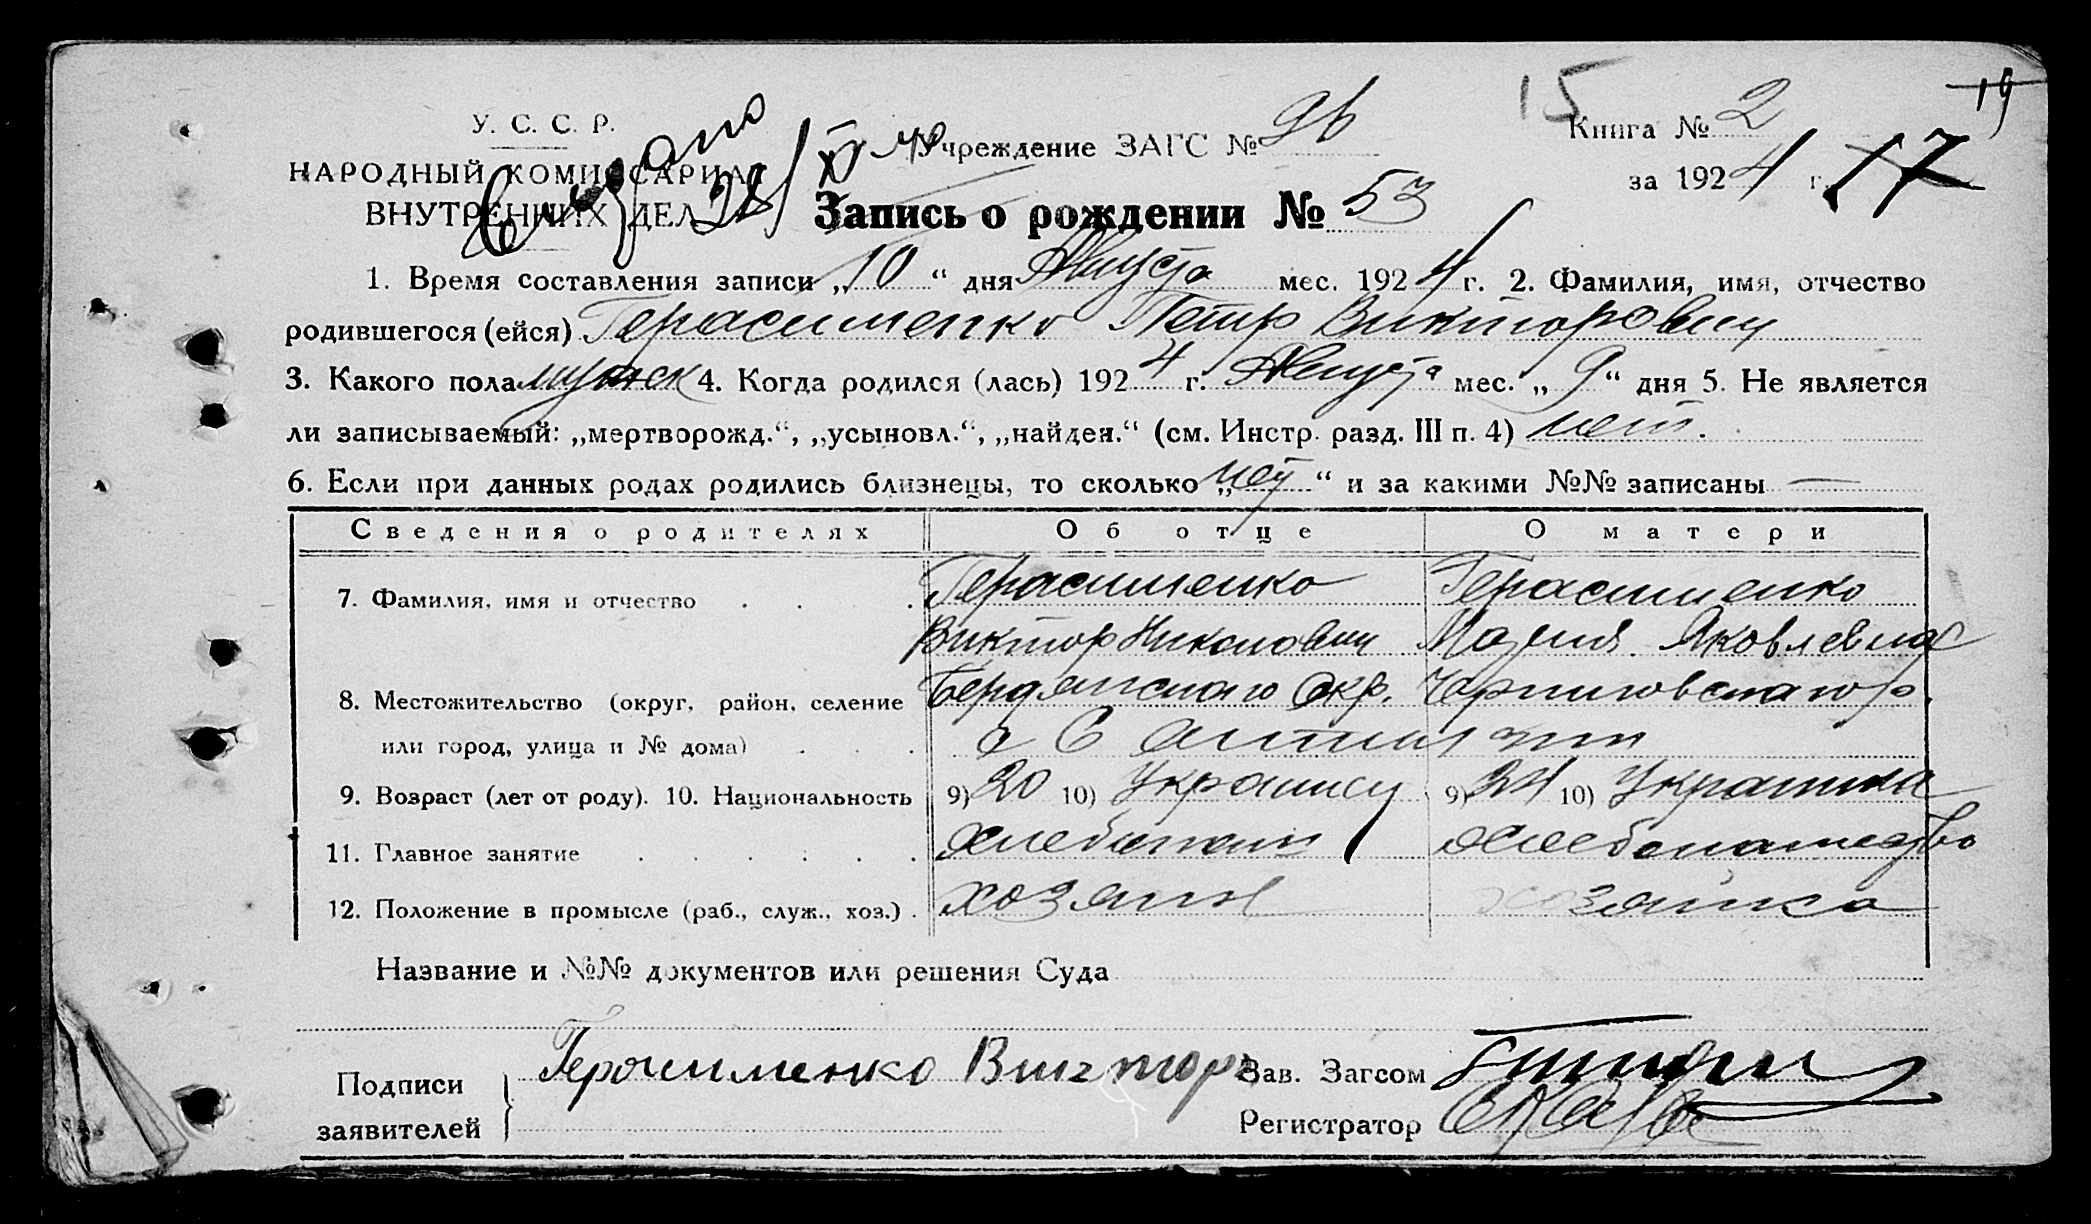 15
19
У. С. С. Р.
НАРОДНЫЙ КОМИССАРИАТ
ВНУТРЕННИХ ДЕЛ
Учреждение ЗАГС №
Книга № 2
за 1924 г. 17
Запись о рождении № 53
1. Время составления записи „10“ дня Августа мес. 1924 г. 2. Фамилия, имя, отчество
родившегося (ейся) Герасименко Петр Викторович
3. Какого пола мужск 4. Когда родился (лась) 1924 г. Августа мес. „9“ дня 5. Не является
ли записываемый: „мертворожд.“, „усыновл.“, „найден.“ (см. Инстр. разд. III п. 4) нет.
6. Если при данных родах родились близнецы, то сколько „нет“ и за какими №№ записаны —
Сведения о родителях Об отце О матери
7. Фамилия, имя и отчество Герасименко Герасименко
Виктор Николович Мария Яковлевна
8. Местожительство (округ, район, селение Бердянского Окр. Черниговского р.
или город, улица и № дома)
9. Возраст (лет от роду). 10. Национальность 9) 20 10) Украинец 9) 21 10) Украинка
11. Главное занятие
12. Положение в промысле (раб., служ., хоз.) хозяин хозяйка
Название и №№ документов или решения Суда
Подписи Герасименко Виктор Зав. Загсом
заявителей Регистратор